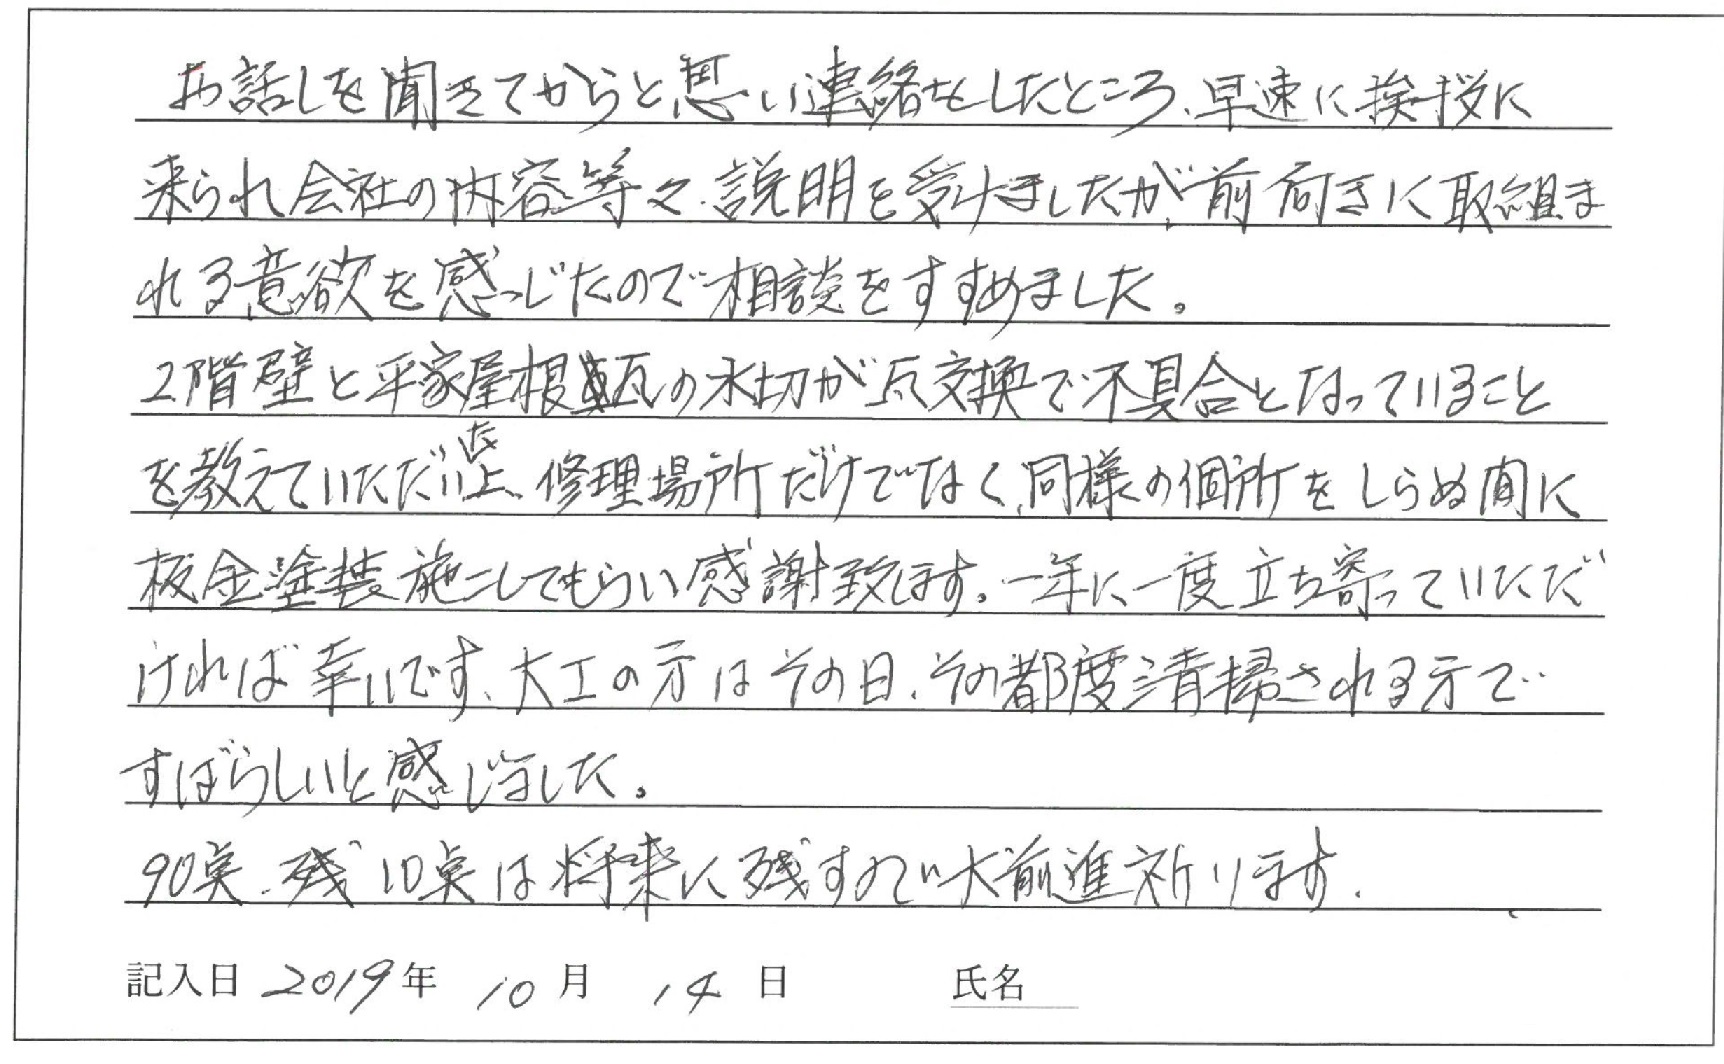 お話しを聞きてからと思い連絡をしたところ、早速に挨拶に
来られ会社の内容等々、説明を受けましたが、前向きに取組ま
れる意欲を感っじたので相談をすすめました。
2階壁と平家屋根瓦の水切が瓦交換で不具合となっていること
を教えていただいた上、修理場所だけでなく、同様の個所をしらぬ間に
板金塗装施こしてもらい感謝致します。一年に一度立ち寄っていただ
ければ幸いです、大工の方はその日、その都度清掃される方で
すばらしいと感じました。
90点、残10点は将来に残すので大前進祈ります。
記入日 2019年 10月 14日 氏名